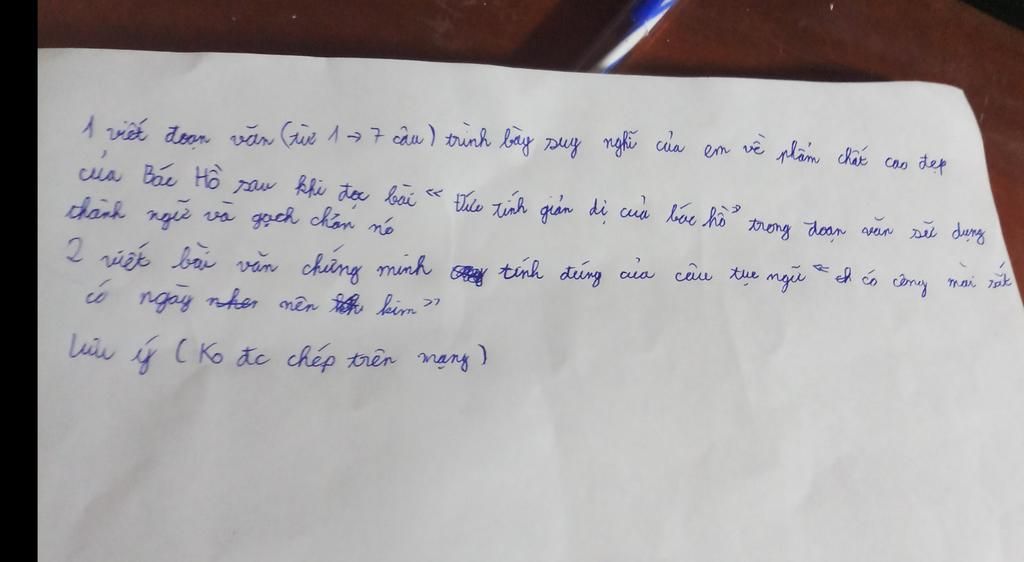 1 viết đoạn văn (từ 1 → 7 câu) trình bày suy nghĩ của em về phẩm chất cao đẹp
của Bác Hồ sau khi đọc bài “Đức tính giản dị của bác hồ” trong đoạn văn sử dụng
thành ngữ và gạch chân nó
2 viết bài văn chứng minh tính đúng của câu tục ngữ “ có công mài sắt
có ngày nên kim”
Lưu ý (Ko đc chép trên mạng)